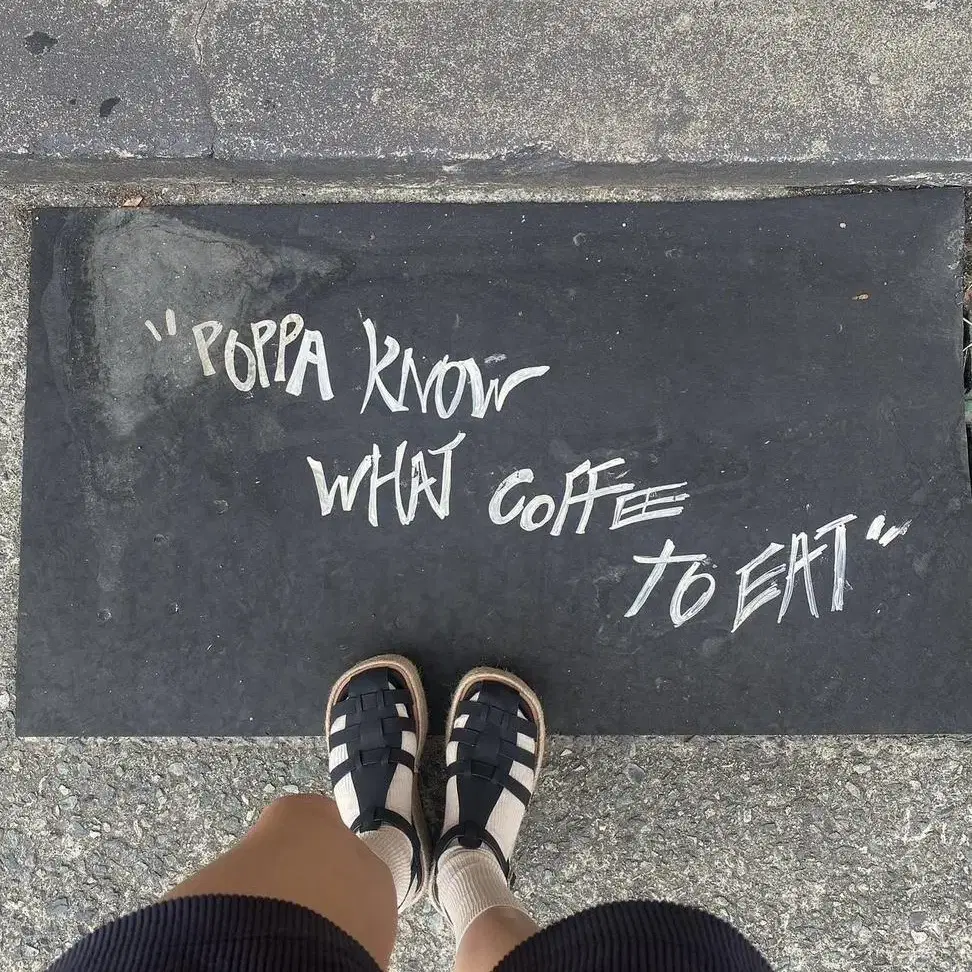 "POPPA KNOW
WHAT COFFEE
TO EAT"